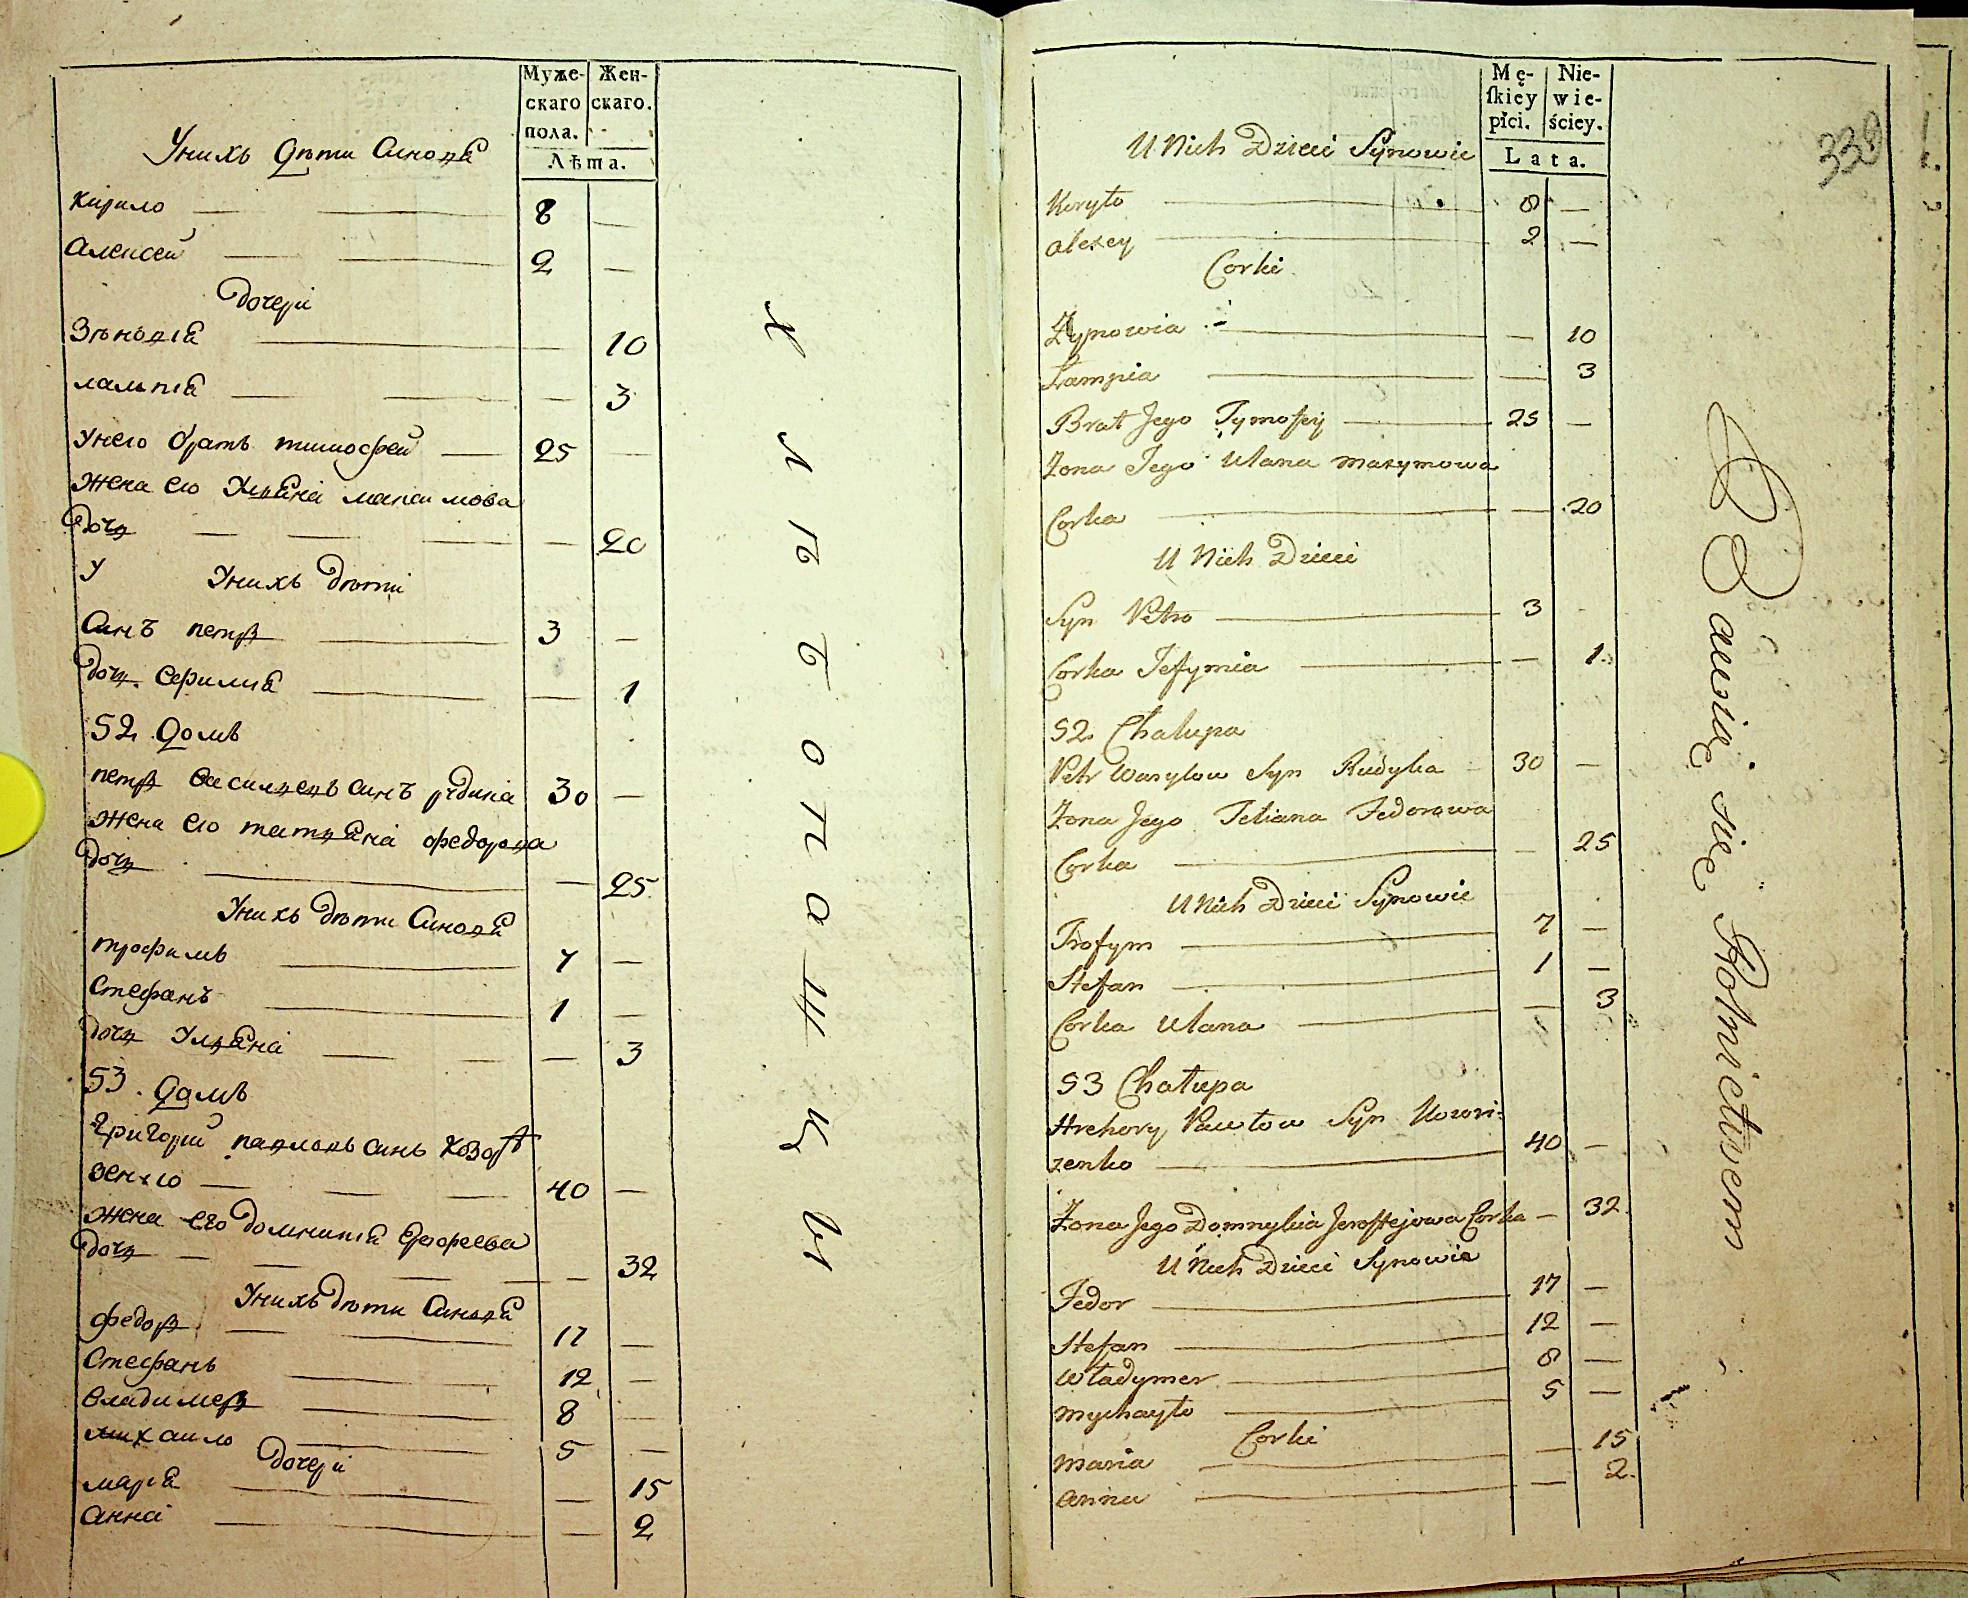 Муже-
скаго
пола.
Жен-
скаго.
Лѣта.
Унихъ Дѣти Синовя
Кирило 8 —
Алексей 2 —
Дочери
Зѣновія — 10
лампія — 3
Унего братъ тимосфей 25 —
жена его Улияна максимова
дочь — 20
У Унихъ дѣти
Синъ петръ 3 —
дочь — 1
52 Домъ
петръ василевъ синъ рудика 30 —
жена его татияна федорова
дочь — 25
Унихъ дѣти Синовя
трофимъ 7 —
Стефанъ 1 —
дочь Улияна — 3
53. Домъ
Григорий павловъ синъ
зенко 40 —
жена его домникия
дочь — 32
Унихъ дѣти Синовя
федоръ 17 —
Стефанъ 12 —
владимеръ 8 —
михаило 5 —
дочери
мария — 15
анна — 2
Хлѣбопашцы
Mę-
ſkiey
płci.
Nie-
wie-
ściey.
Lata.
338
U Nich Dzieci Synowie
Kiryło 8 —
Alexey 2 —
Corki
Zynowia — 10
Łampia — 3
Brat Jego Tymofiy 25 —
Żona Jego Ulana Maxymowa
Corka — 20
U Nich Dzieci
Syn Petro 3
Corka Jefymia — 1.
52. Chałupa
Petr Wasylow Syn Rudyka 30 —
Żona Jego Tetiana Fedorowa
Corka — 25
U Nich Dzieci Synowie
Trofym 7 —
Stefan 1 —
Corka Ulana — 3
53 Chałupa
Hrehory Pawłow Syn
zenko 40 —
Żona Jego Domnykia Jerofiejowa Corka — 32.
U Nich Dzieci Synowie
Fedor 17 —
Stefan 12 —
Władymer 8 —
Mychayło 5 —
Corki
Maria — 15
Anna — 2.
Bawią się Rolnictwem